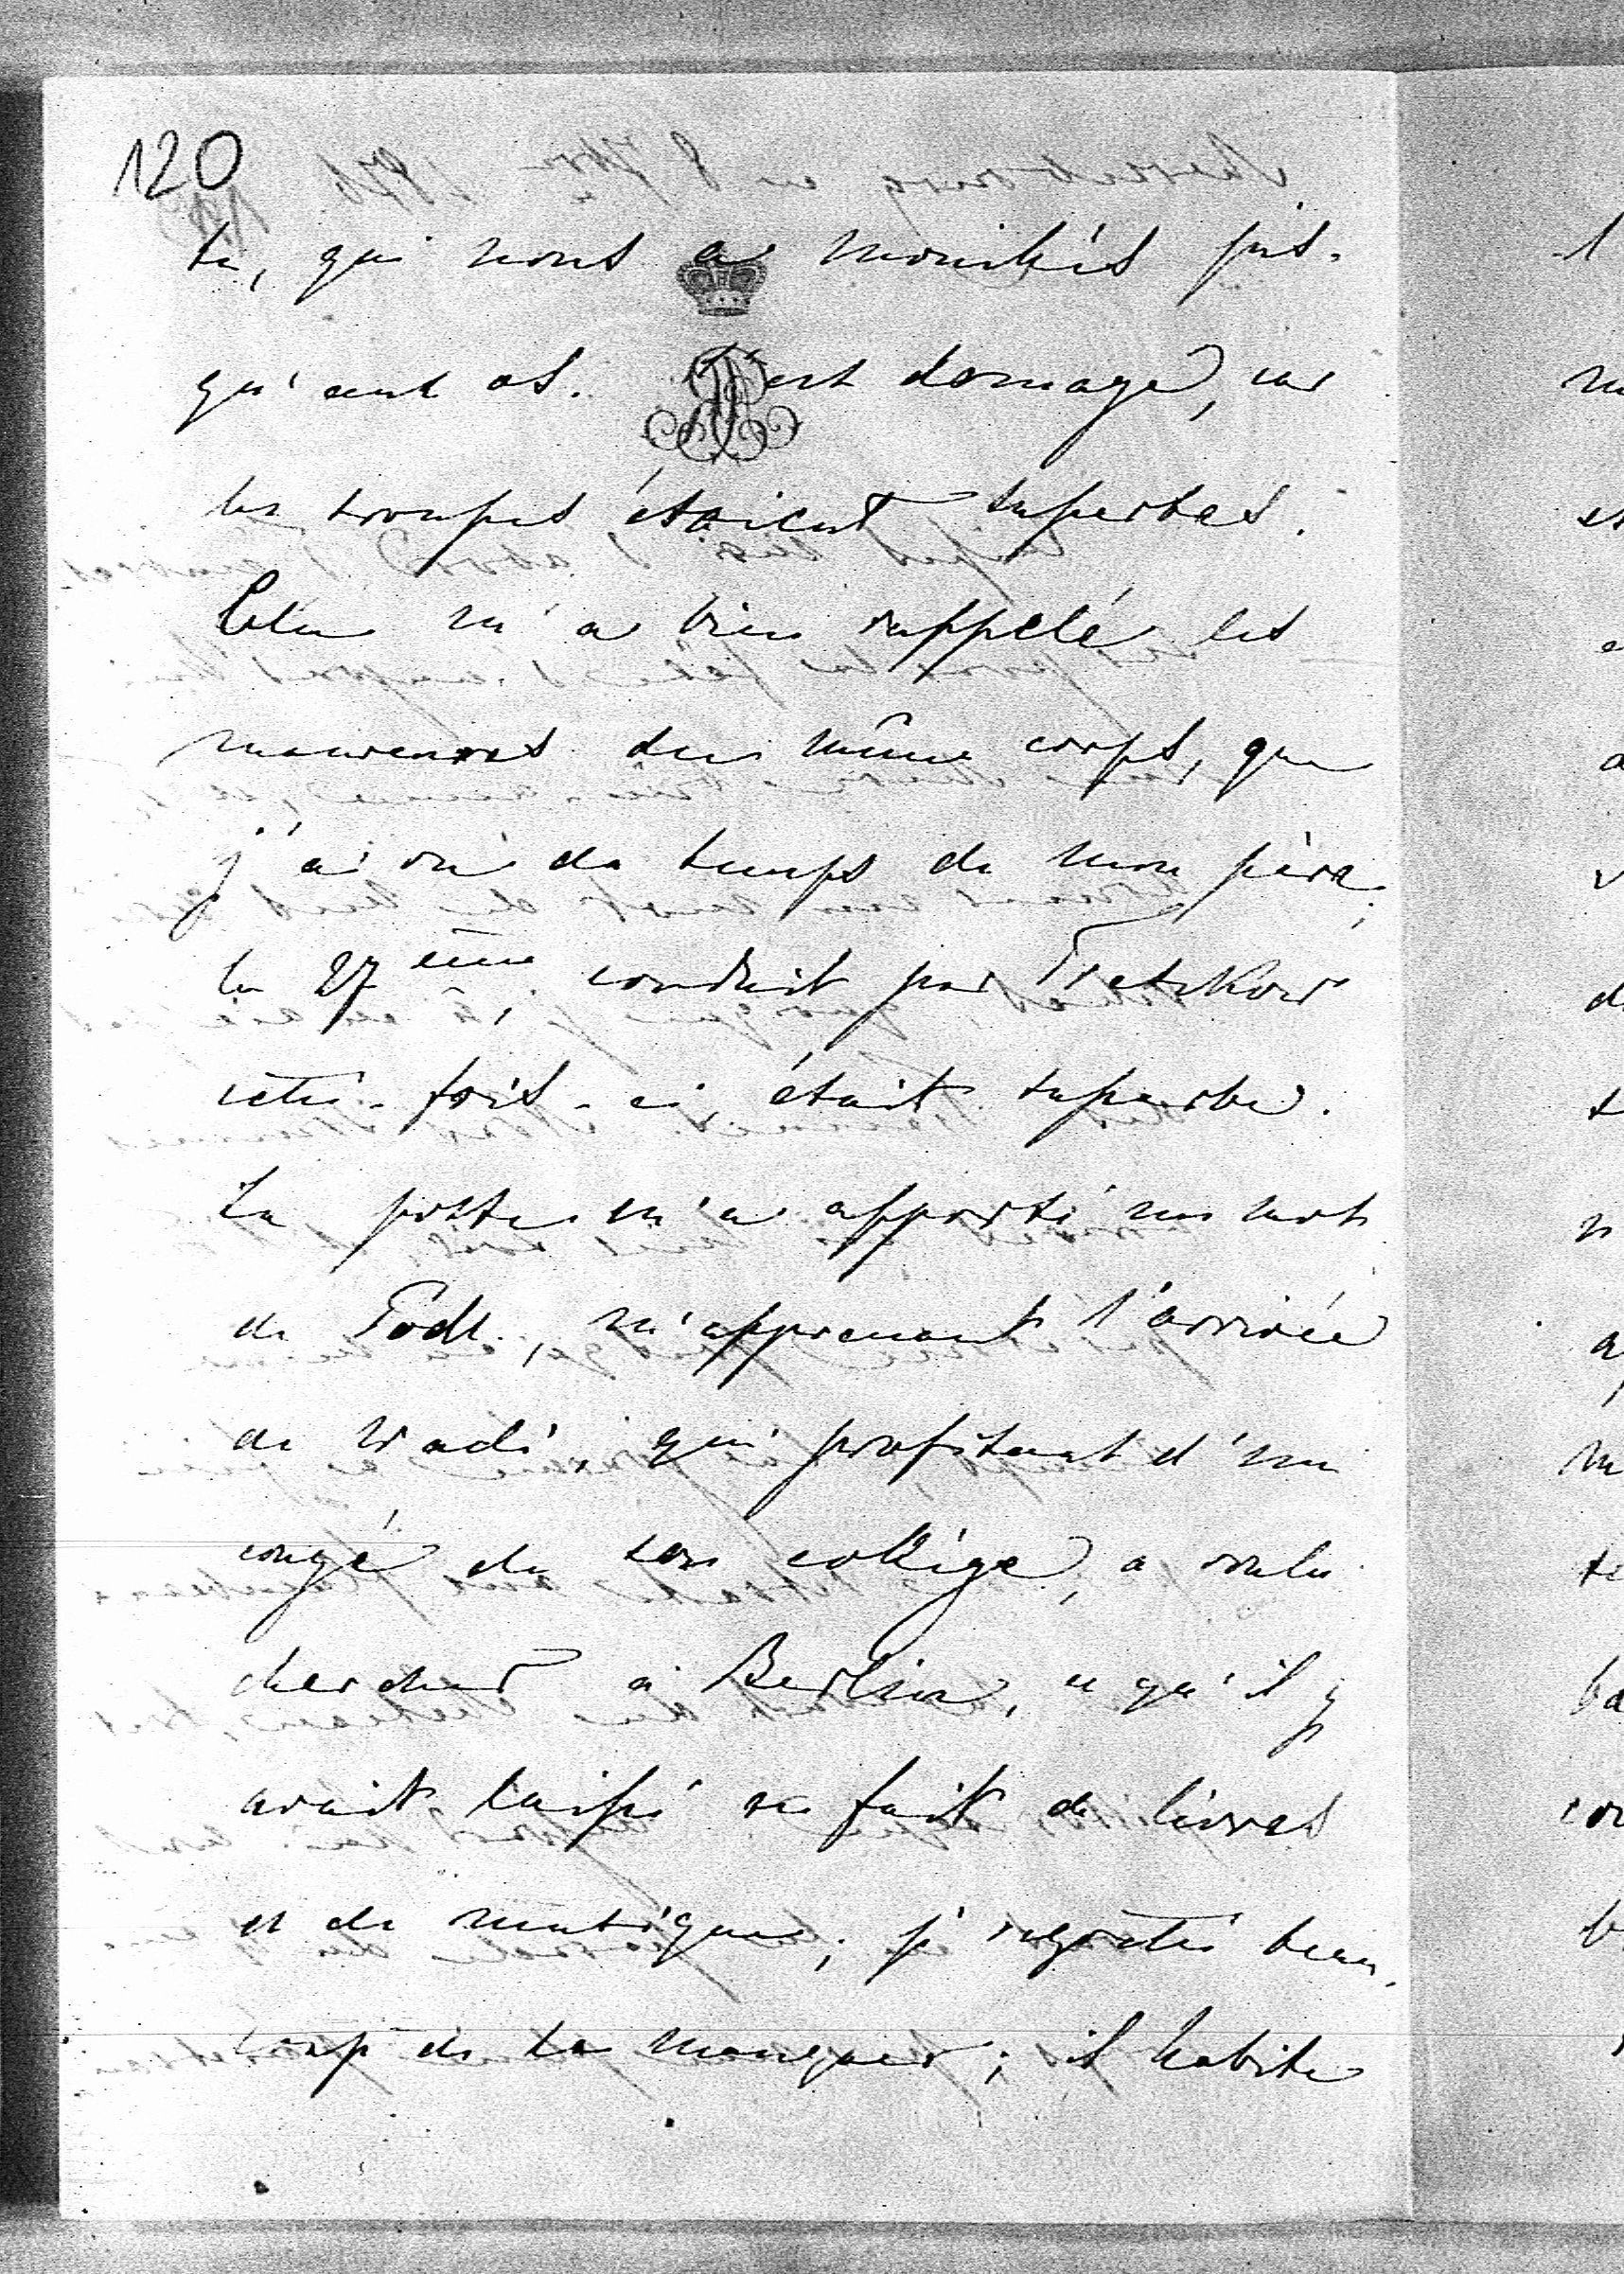 120
te, qui nous a mouillés jus-
qu'aux os. C'est domage, car
les troupes étaient superbes.
Cela m'a bien rappelé les
manœuvres du même corps, que
j'ai vu du temps de mon père;
le 27ème, conduit par Tresckow
cette-fois-ci, était superbe.
La poste m'a apporté un mot
de Podb., m'apprenant l'arrivée
de Wadi. qui profitant d'un
congé de son collège, a voulu
chercher à Berlin, ce qu'il y
avait laissé en fait de livres
et de musique; je regrette beau-
coup de le manquer; il habite